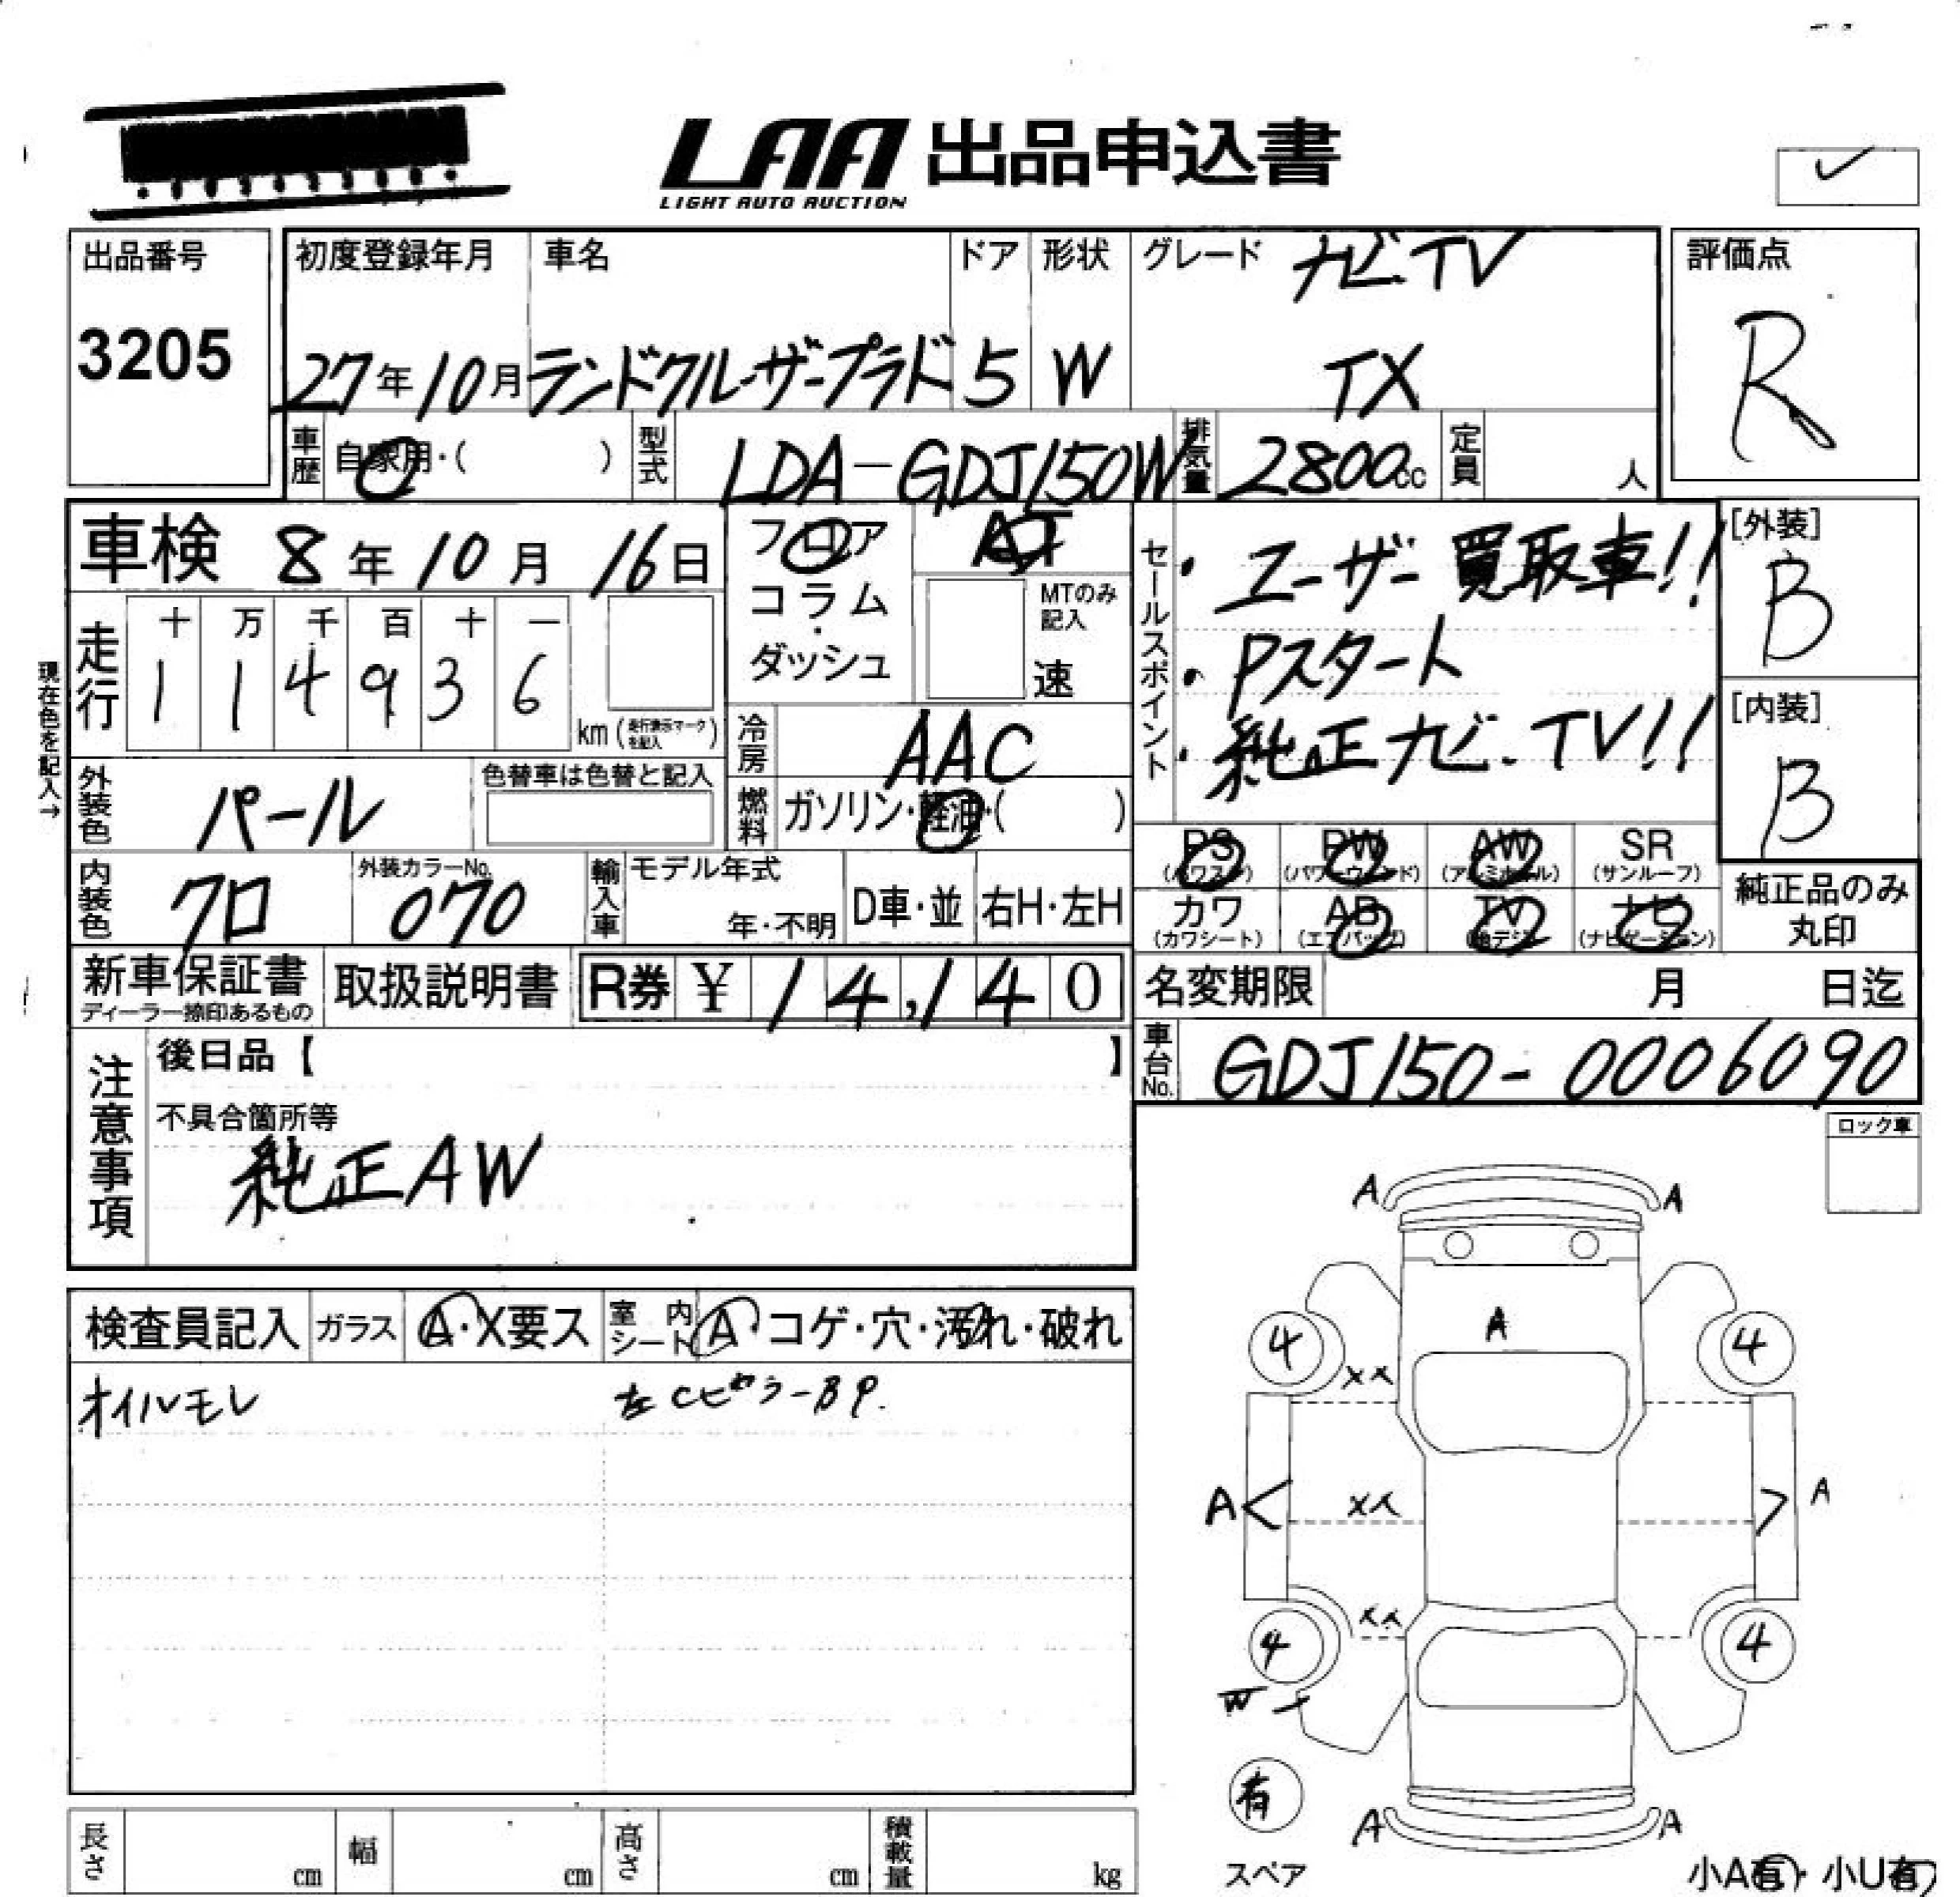 LAA 出品申込書
LIGHT AUTO AUCTION
出品番号
3205
初度登録年月 車名 ドア 形状 グレード ナビ・TV
27年10月 ランドクルーザープラド 5 W TX
評価点
R
車歴 自家用・( ) 型式 LDA-GDJ150W 排気量 2800cc 定員 人
車検 8年10月16日
フロア
コラム・
ダッシュ
AT
MTのみ記入
速
走行 十 万 千 百 十 一
1 1 4 9 3 6
km (走行表示マークを記入)
現在色を記入→
外装色 パール 色替車は色替と記入
冷房 AAC
燃料 ガソリン・軽油・( )
セールスポイント
・ユーザー買取車!!
・Pスタート
・純正ナビ・TV!!
[外装]
B
[内装]
B
PS (パワステ) PW (パワーウィンド) AW (アルミホイル) SR (サンルーフ)
カワ (カワシート) AB (エアバッグ) TV (地デジ) ナビ (ナビゲーション)
純正品のみ
丸印
内装色 クロ 外装カラーNo. 070 輸入車 モデル年式 年・不明 D車・並 右H・左H
新車保証書
ディーラー捺印あるもの
取扱説明書 R券 ¥ 14,140
名変期限 月 日迄
車台No. GDJ150-0006090
注意事項
後日品【 】
不具合箇所等
純正AW
ロック車
検査員記入 ガラス A・X要ス 室内シート A・コゲ・穴・汚れ・破れ
オイルモレ 左CピラーBP.
A A
A
4 4
XX
A XX A
XX
4 4
W
有
スペア
A A
小A有・小U有
長さ cm 幅 cm 高さ cm 積載量 kg